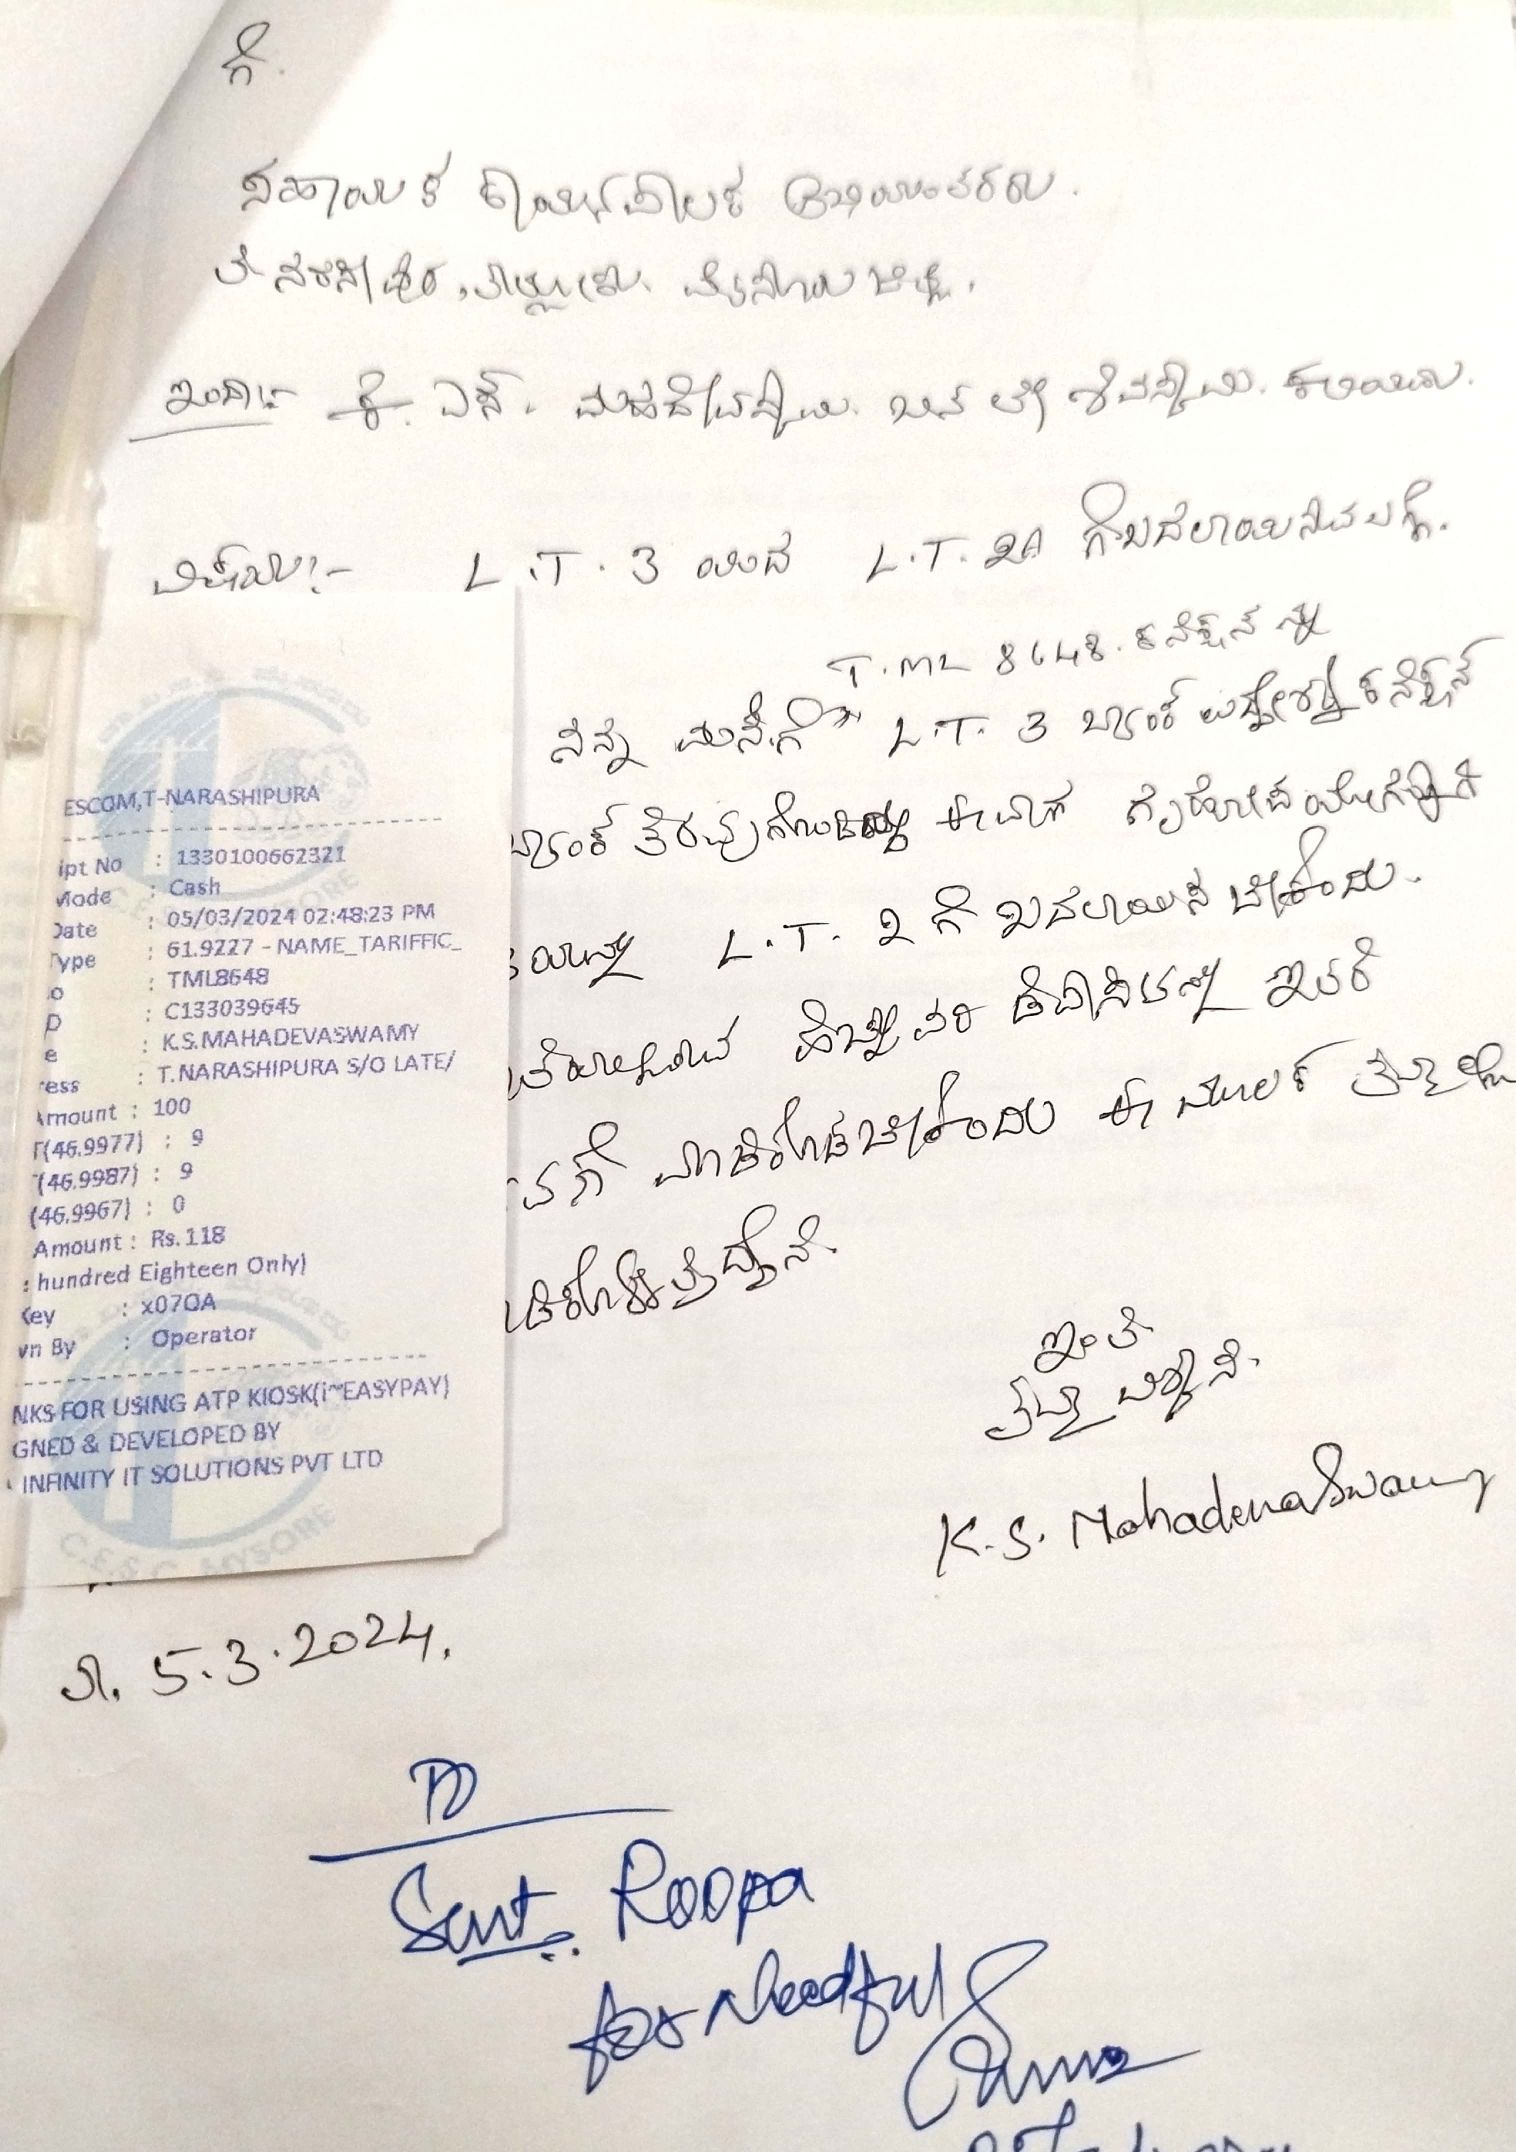 ಗೆ.
ಸಹಾಯಕ ಕಾರ್ಯಪಾಲಕ ಅಭಿಯಂತರರು.
ತಿ ನರಸೀಪುರ, ತಾಲ್ಲೂಕು. ಮೈಸೂರು ಜಿಲ್ಲೆ.
ಇಂದ:- ಕೆ. ಎಸ್. ಮಹದೇವಸ್ವಾಮಿ. ಬಿನ್ ಲೇ ಶಿವಸ್ವಾಮಿ.
ವಿಷಯ:- L.T. 3 ಯಿಂದ L.T. 2A ಗೆ ಬದಲಾಯಿಸುವ ಬಗ್ಗೆ.
T.ML 8648. ಕನೆಕ್ಷನ್ ನ್ನು
ನನ್ನ ಮನೆಗೆ L.T. 3 ಬ್ಯಾಂಕ್ ಕನೆಕ್ಷನ್
ಬ್ಯಾಂಕ್ ತೆರವುಗೊಂಡಿದ್ದು ಈವಾಗ ಗೃಹೋಪಯೋಗಕ್ಕಾಗಿ
L.T. 2 ಗೆ ಬದಲಾಯಿಸ ಬೇಕೆಂದು.
ಹೆಚ್ಚುವರಿ ಡೆಪಾಸಿಟನ್ನು ಇತರೆ
ಮಾಡಿಕೊಡಬೇಕೆಂದು ಈ ಮೂಲಕ ತಮ್ಮಲ್ಲಿ
ಇಂತಿ
ತಮ್ಮ ವಿಶ್ವಾಸಿ.
K.S. Mahadevaswamy
ESCOM,T-NARASHIPURA
ipt No : 1330100662321
Mode : Cash
Date : 05/03/2024 02:48:23 PM
Type : 61.9227 - NAME_TARIFFIC_
o : TML8648
D : C133039645
e : K.S.MAHADEVASWAMY
ress : T.NARASHIPURA S/O LATE/
Amount : 100
T(46.9977) : 9
T(46.9987) : 9
(46.9967) : 0
Amount : Rs.118
: hundred Eighteen Only)
Key : x07OA
wn By : Operator
NKS FOR USING ATP KIOSK(i~EASYPAY)
GNED & DEVELOPED BY
INFINITY IT SOLUTIONS PVT LTD
C.E.S.C. MYSORE
ದಿ. 5.3.2024.
Smt. Roopa
for Needful